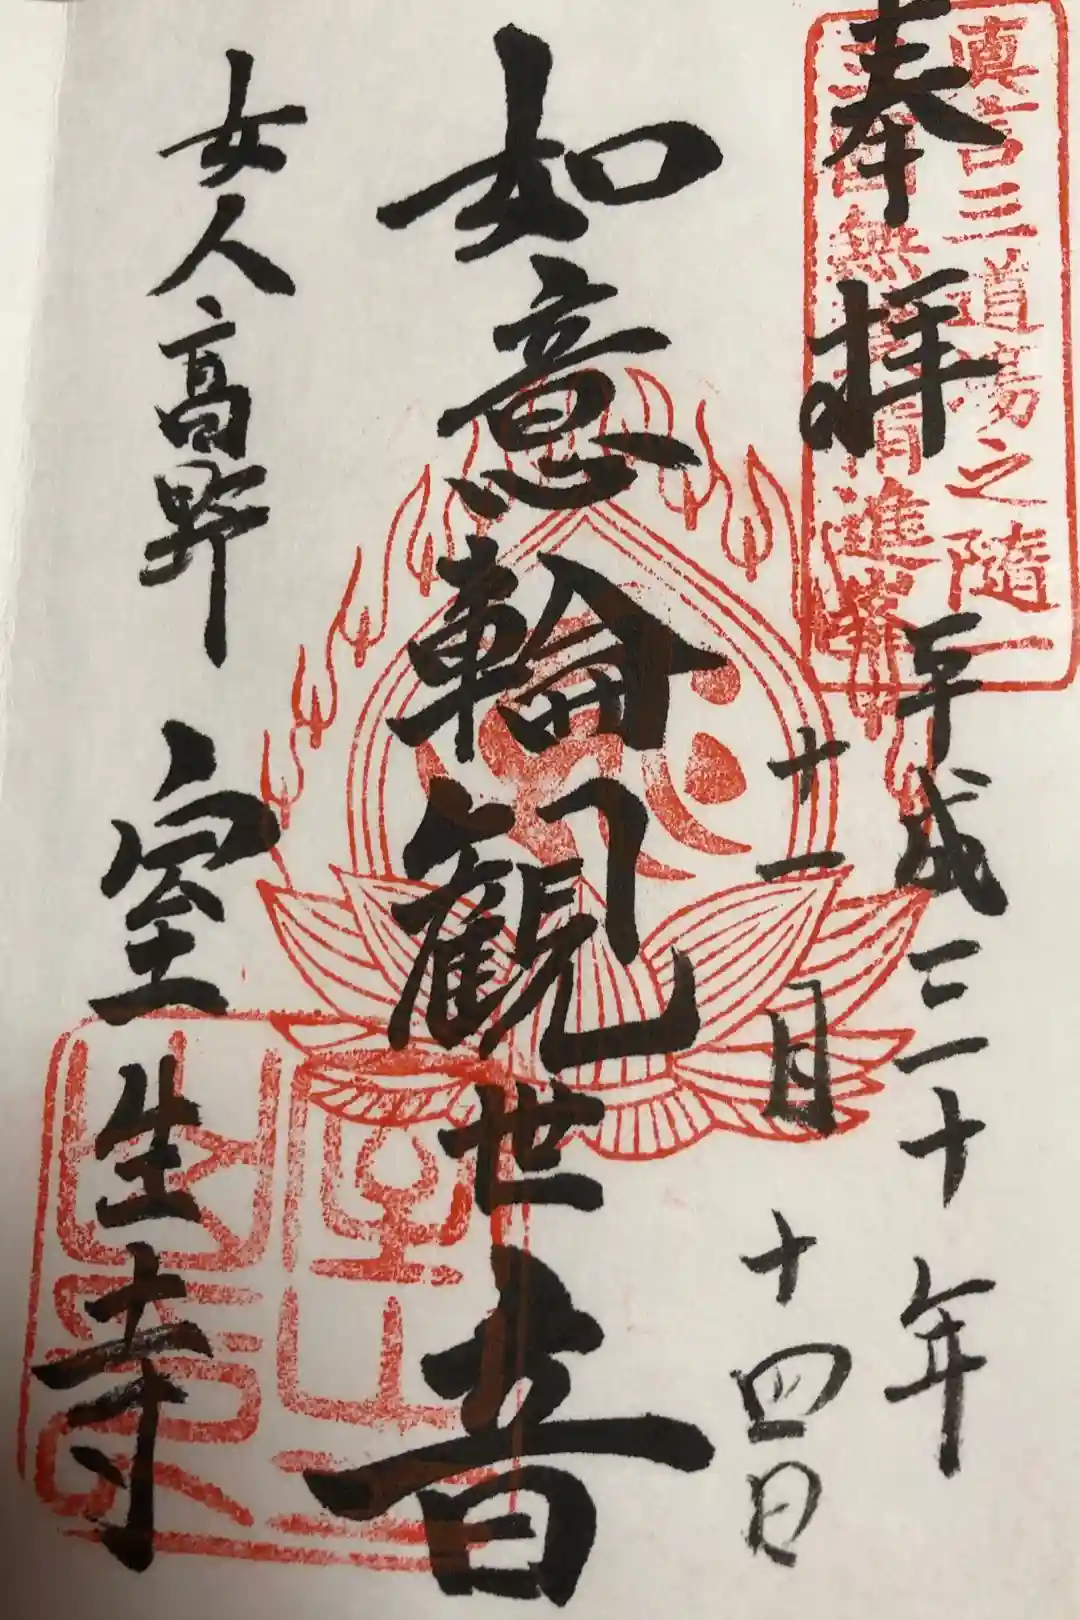 真言三道場之随一
奉拝
平成三十年
十一月十四日
如意輪観世音
女人高野
室生寺